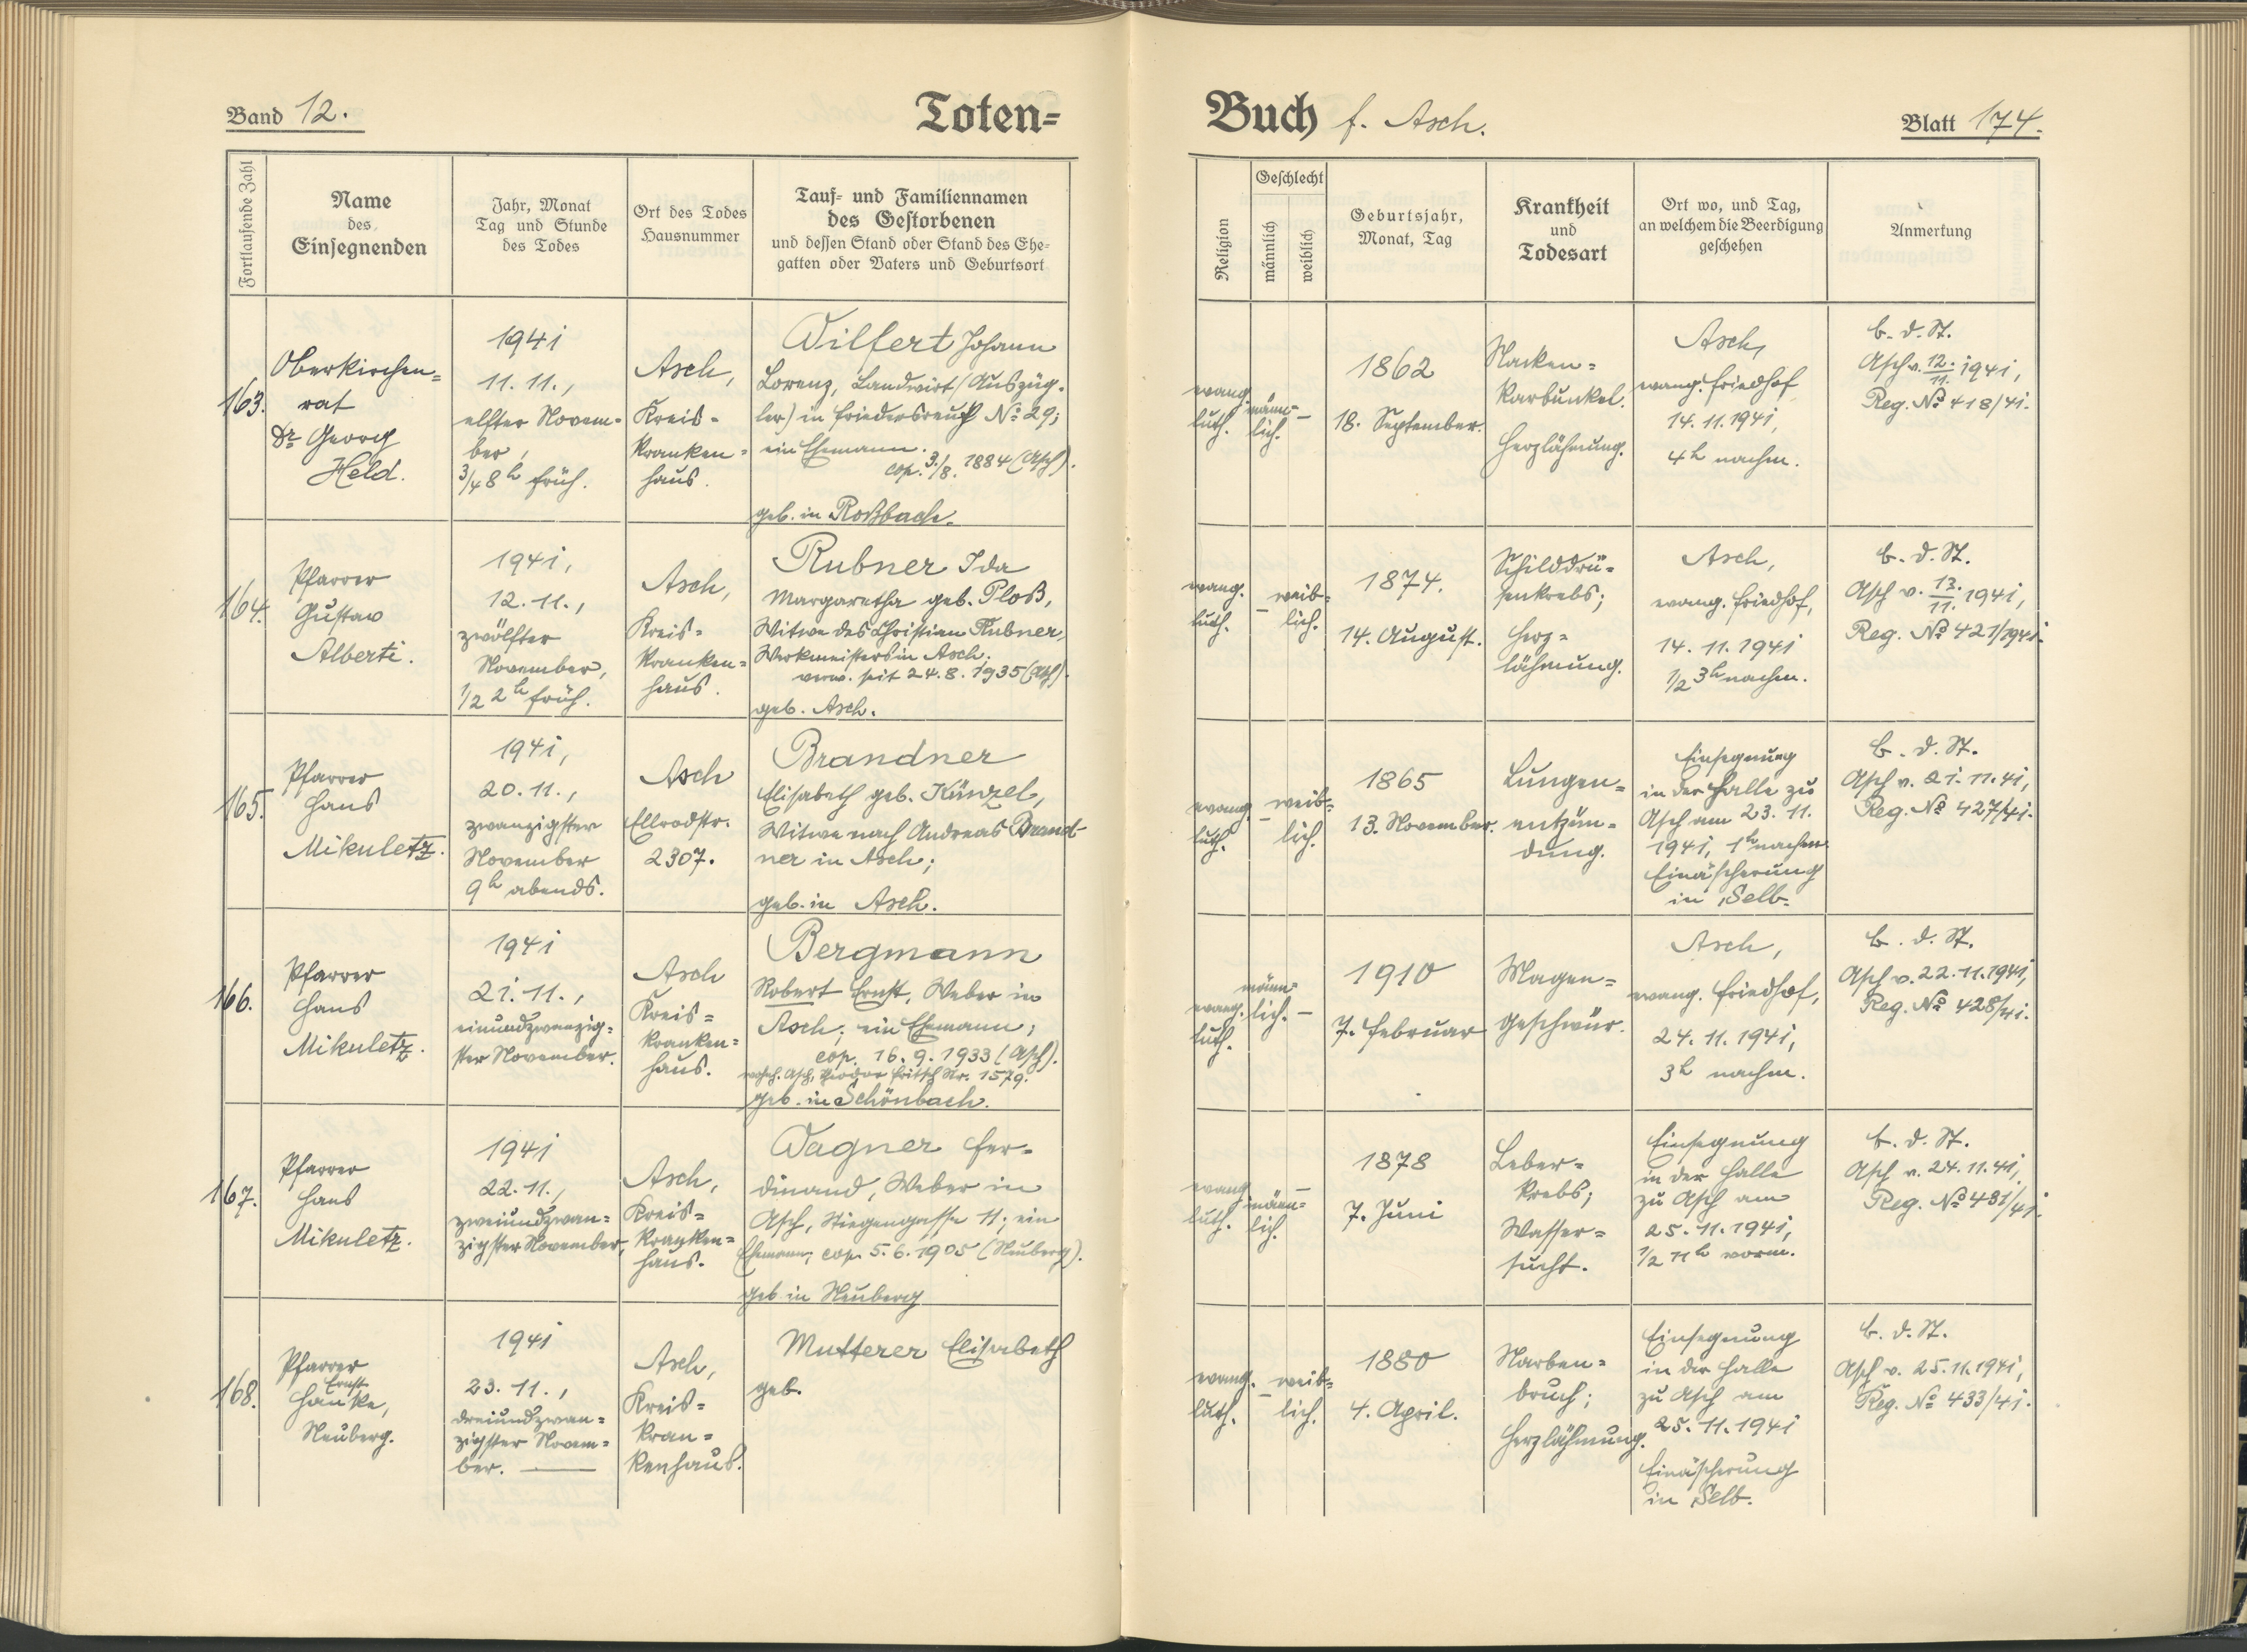 Band 12.
Toten=
Buch f. Asch.
Blatt 174.
Fortlaufende Zahl
Name
des
Einsegnenden
Jahr, Monat
Tag und Stunde
des Todes
Ort des Todes
Hausnummer
Tauf- und Familiennamen
des Gestorbenen
und dessen Stand oder Stand des Ehe-
gatten oder Vaters und Geburtsort
Religion
Geschlecht
männlich
weiblich
Geburtsjahr,
Monat, Tag
Krankheit
und
Todesart
Ort wo, und Tag,
an welchem die Beerdigung
geschehen
Anmerkung
163.
Oberkirchen=
rat
Dr Georg
Held.
1941
11. 11.,
elfter Novem-
ber,
3/4 8h früh.
Asch,
Kreis-
kranken=
haus.
Wilfert Johann
Lorenz, Landwirt (Auszüg-
ler) in Friedersreuth No 29;
ein Ehemann.
cop. 3./8. 1884 (Asch).
geb. in Roßbach.
evang.
luth.
männ=
lich.
–
1862
18. September.
Nacken=
karbunkel.
Herzlähmung.
Asch,
evang. Friedhof
14. 11. 1941,
4h nachm.
b. d. St.
Asch v. 12./11. 1941,
Reg. No 418/41.
164.
Pfarrer
Gustav
Alberti.
1941,
12. 11.,
zwölfter
November,
1/2 2h früh.
Asch,
Kreis=
kranken=
haus.
Rubner Ida
Margaretha geb. Ploß,
Witwe des Christian Rubner,
Werkmeisters in Asch.
verw. seit 24. 8. 1935 (Asch).
geb. Asch.
evang.
luth.
–
weib=
lich.
1874.
14. August.
Schilddrü=
senkrebs;
Herz=
lähmung.
Asch,
evang. Friedhof,
14. 11. 1941
1/2 3h nachm.
b. d. St.
Asch v. 13./11. 1941,
Reg. No 421/1941.
165.
Pfarrer
Hans
Mikuletz.
1941,
20. 11.,
zwanzigster
November
9h abends.
Asch
Ellrodstr.
2307.
Brandner
Elisabeth geb. Künzel,
Witwe nach Andreas Brand-
ner in Asch;
geb. in Asch.
evang.
luth.
–
weib=
lich.
1865
13. November.
Lungen=
entzün=
dung.
Einsegnung
in der Halle zu
Asch am 23. 11.
1941, 1h nachm.
Einäscherung
in Selb.
b. d. St.
Asch v. 21. 11. 41,
Reg. No 427/41.
166.
Pfarrer
Hans
Mikuletz.
1941
21. 11.,
einundzwanzig-
ster November.
Asch
Kreis=
kranken=
haus.
Bergmann
Robert Ernst, Weber in
Asch; ein Ehemann;
cop. 16. 9. 1933 (Asch).
wohnh. Asch, Theodor Fritsch Nr. 1579.
geb. in Schönbach.
evang.
luth.
männ=
lich.
–
1910
7. Februar
Magen=
geschwür.
Asch,
evang. Friedhof,
24. 11. 1941,
3h nachm.
b. d. St.
Asch v. 22. 11. 1941,
Reg. No 428/41.
167.
Pfarrer
Hans
Mikuletz.
1941
22. 11.,
zweiundzwan=
zigster November,
Asch,
Kreis=
kranken=
haus.
Wagner Fer=
dinand, Weber in
Asch, Stiegengasse 11; ein
Ehemann; cop. 5. 6. 1905 (Neuberg).
geb in Neuberg
evang
luth.
männ=
lich.
–
1878
7. Juni
Leber=
krebs;
Wasser=
sucht.
Einsegnung
in der Halle
zu Asch am
25. 11. 1941,
1/2 11h vorm.
b. d. St.
Asch v. 24. 11. 41,
Reg. No 431/41.
168.
Pfarrer
Ernst
Hanke,
Neuberg.
1941
23. 11.,
dreiundzwan=
zigster Novem=
ber. —
Asch,
Kreis=
kran=
kenhaus.
Mutterer Elisabeth
geb.
evang.
luth.
–
weib=
lich.
1880
4. April.
Narben=
bruch;
Herzlähmung.
Einsegnung
in der Halle
zu Asch am
25. 11. 1941
Einäscherung
in Selb.
b. d. St.
Asch v. 25. 11. 1941,
Reg. No 433/41.